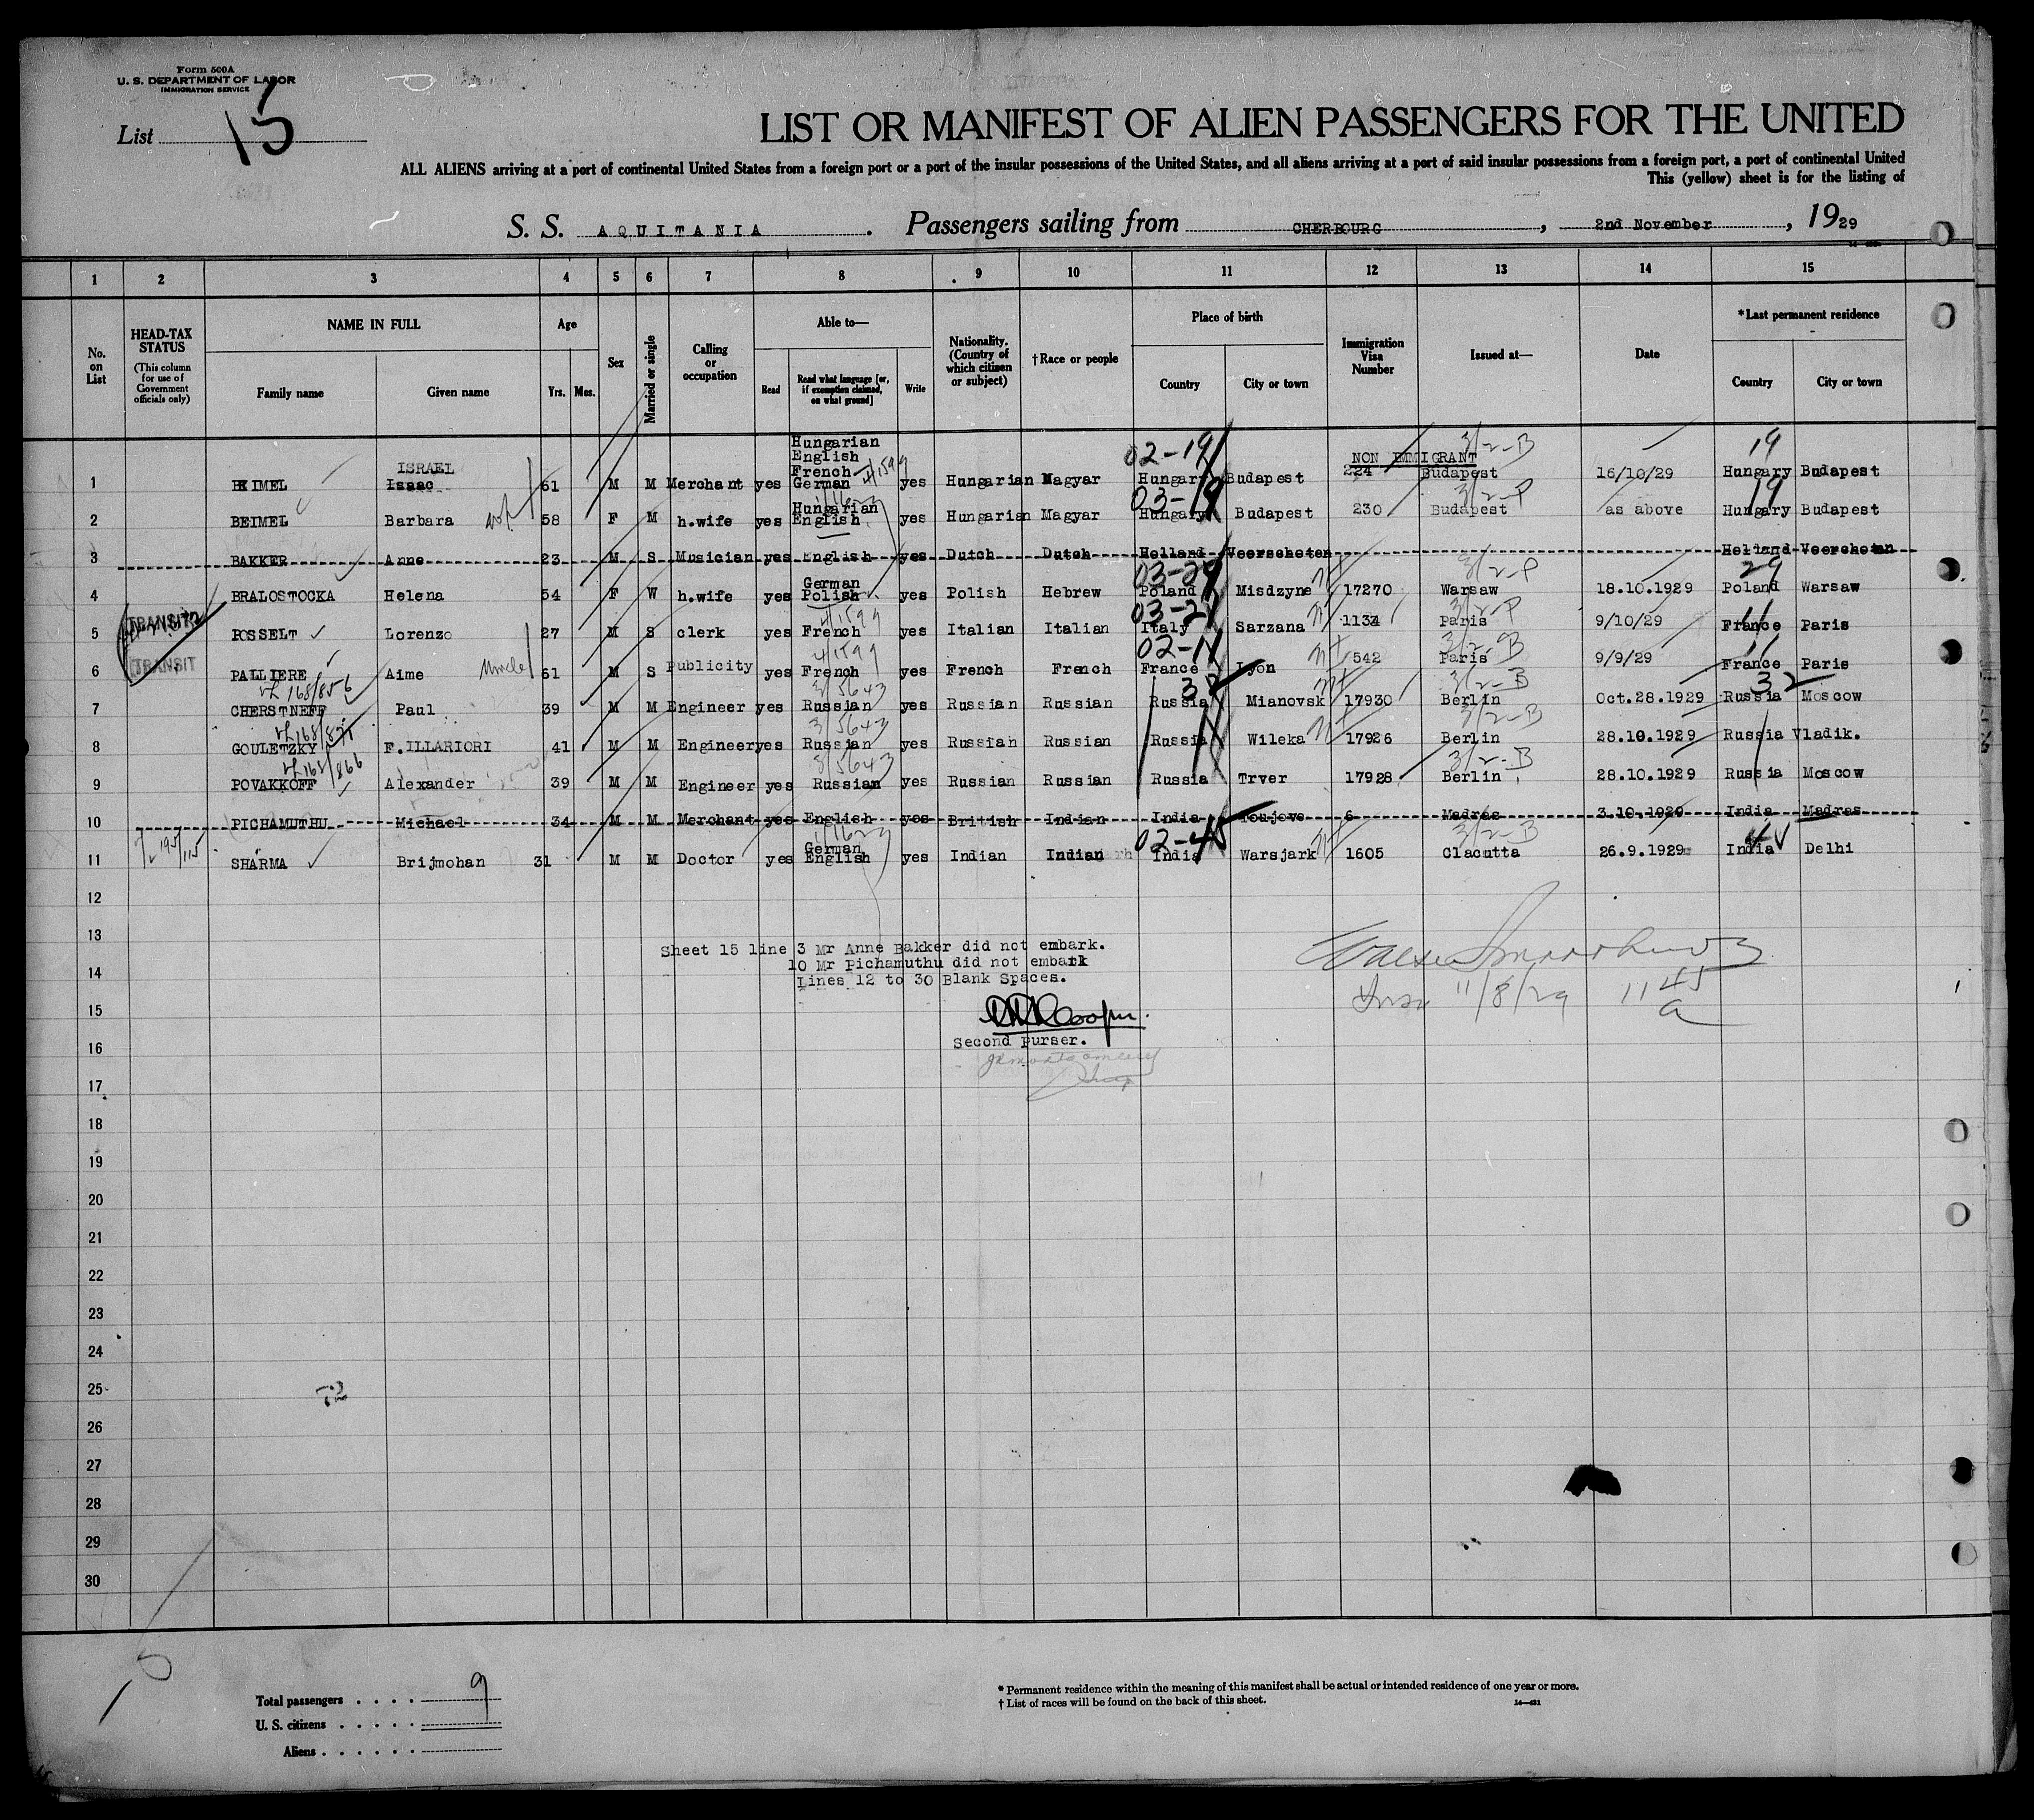 Form 500A
U. S. DEPARTMENT OF LABOR
IMMIGRATION SERVICE
List 15
LIST OR MANIFEST OF ALIEN PASSENGERS FOR THE UNITED
ALL ALIENS arriving at a port of continental United States from a foreign port or a port of the insular possessions of the United States, and all aliens arriving at a port of said insular possessions from a foreign port, a port of continental United
This (yellow) sheet is for the listing of
S. S. AQUITANIA . Passengers sailing from CHERBOURG , 2nd November , 1929
1 2 3 4 5 6 7 8 9 10 11 12 13 14 15
No. on List
HEAD-TAX STATUS
(This column for use of Government officials only)
NAME IN FULL
Family name Given name
Age
Yrs. Mos.
Sex
Married or single
Calling or occupation
Able to—
Read
Read what language [or, if exemption claimed, on what ground]
Write
Nationality. (Country of which citizen or subject)
†Race or people
Place of birth
Country City or town
Immigration Visa Number
Issued at—
Date
*Last permanent residence
Country City or town
02-19 3/2-B 19
NON IMMIGRANT
1 BEIMEL ISRAEL Isaac 61 M M Merchant yes Hungarian English French German yes Hungarian Magyar Hungary Budapest 224 Budapest 16/10/29 Hungary Budapest
03-19 3/2-P 19
2 BEIMEL Barbara 58 F M h.wife yes Hungarian English yes Hungarian Magyar Hungary Budapest 230 Budapest as above Hungary Budapest
3 BAKKER Anne 23 M S Musician yes English yes Dutch Dutch Holland Veerschoten Holland Veerchoten
03-29 3/2-P 29
4 BRALOSTOCKA Helena 54 F W h.wife yes German Polish yes Polish Hebrew Poland Misdzyne 17270 Warsaw 18.10.1929 Poland Warsaw
TRANSIT 4/1599 03-21 3/2-P 11
5 ROSSELT Lorenzo 27 M S clerk yes French yes Italian Italian Italy Sarzana 1134 Paris 9/10/29 France Paris
TRANSIT 4/1599 02-11 3/2-B 11
6 PALLIERE Aime Uncle 61 M S Publicity yes French yes French French France Lyon 542 Paris 9/9/29 France Paris
168/856 3/5643 32 3/2-B 32
7 CHERSTNEFF Paul 39 M M Engineer yes Russian yes Russian Russian Russia Mianovsk 17930 Berlin Oct.28.1929 Russia Moscow
3/5643 3/2-B
8 GOULETZKY F.ILLARIORI 41 M M Engineer yes Russian yes Russian Russian Russia Wileka 17926 Berlin 28.10.1929 Russia Vladik.
3/5643 3/2-B
9 POVAKKOFF Alexander 39 M M Engineer yes Russian yes Russian Russian Russia Trver 17928 Berlin 28.10.1929 Russia Moscow
10 PICHAMUTHU Michael 34 M M Merchant yes English yes British Indian India Toujove 6 Madras 3.10.1929 India Madras
02-45 3/2-B
11 SHARMA Brijmohan 31 M M Doctor yes German English yes Indian Indian India Warsjark 1605 Clacutta 26.9.1929 India Delhi
12
13
Sheet 15 line 3 Mr Anne Bakker did not embark.
10 Mr Pichamuthu did not embark
14
Lines 12 to 30 Blank Spaces.
11/8/29 11 45 a
15
Cooper.
Second purser.
16
17
18
19
20
21
22
23
24
25
26
27
28
29
30
Total passengers . . . . 9
U. S. citizens . . . . .
Aliens . . . . . .
* Permanent residence within the meaning of this manifest shall be actual or intended residence of one year or more.
† List of races will be found on the back of this sheet.